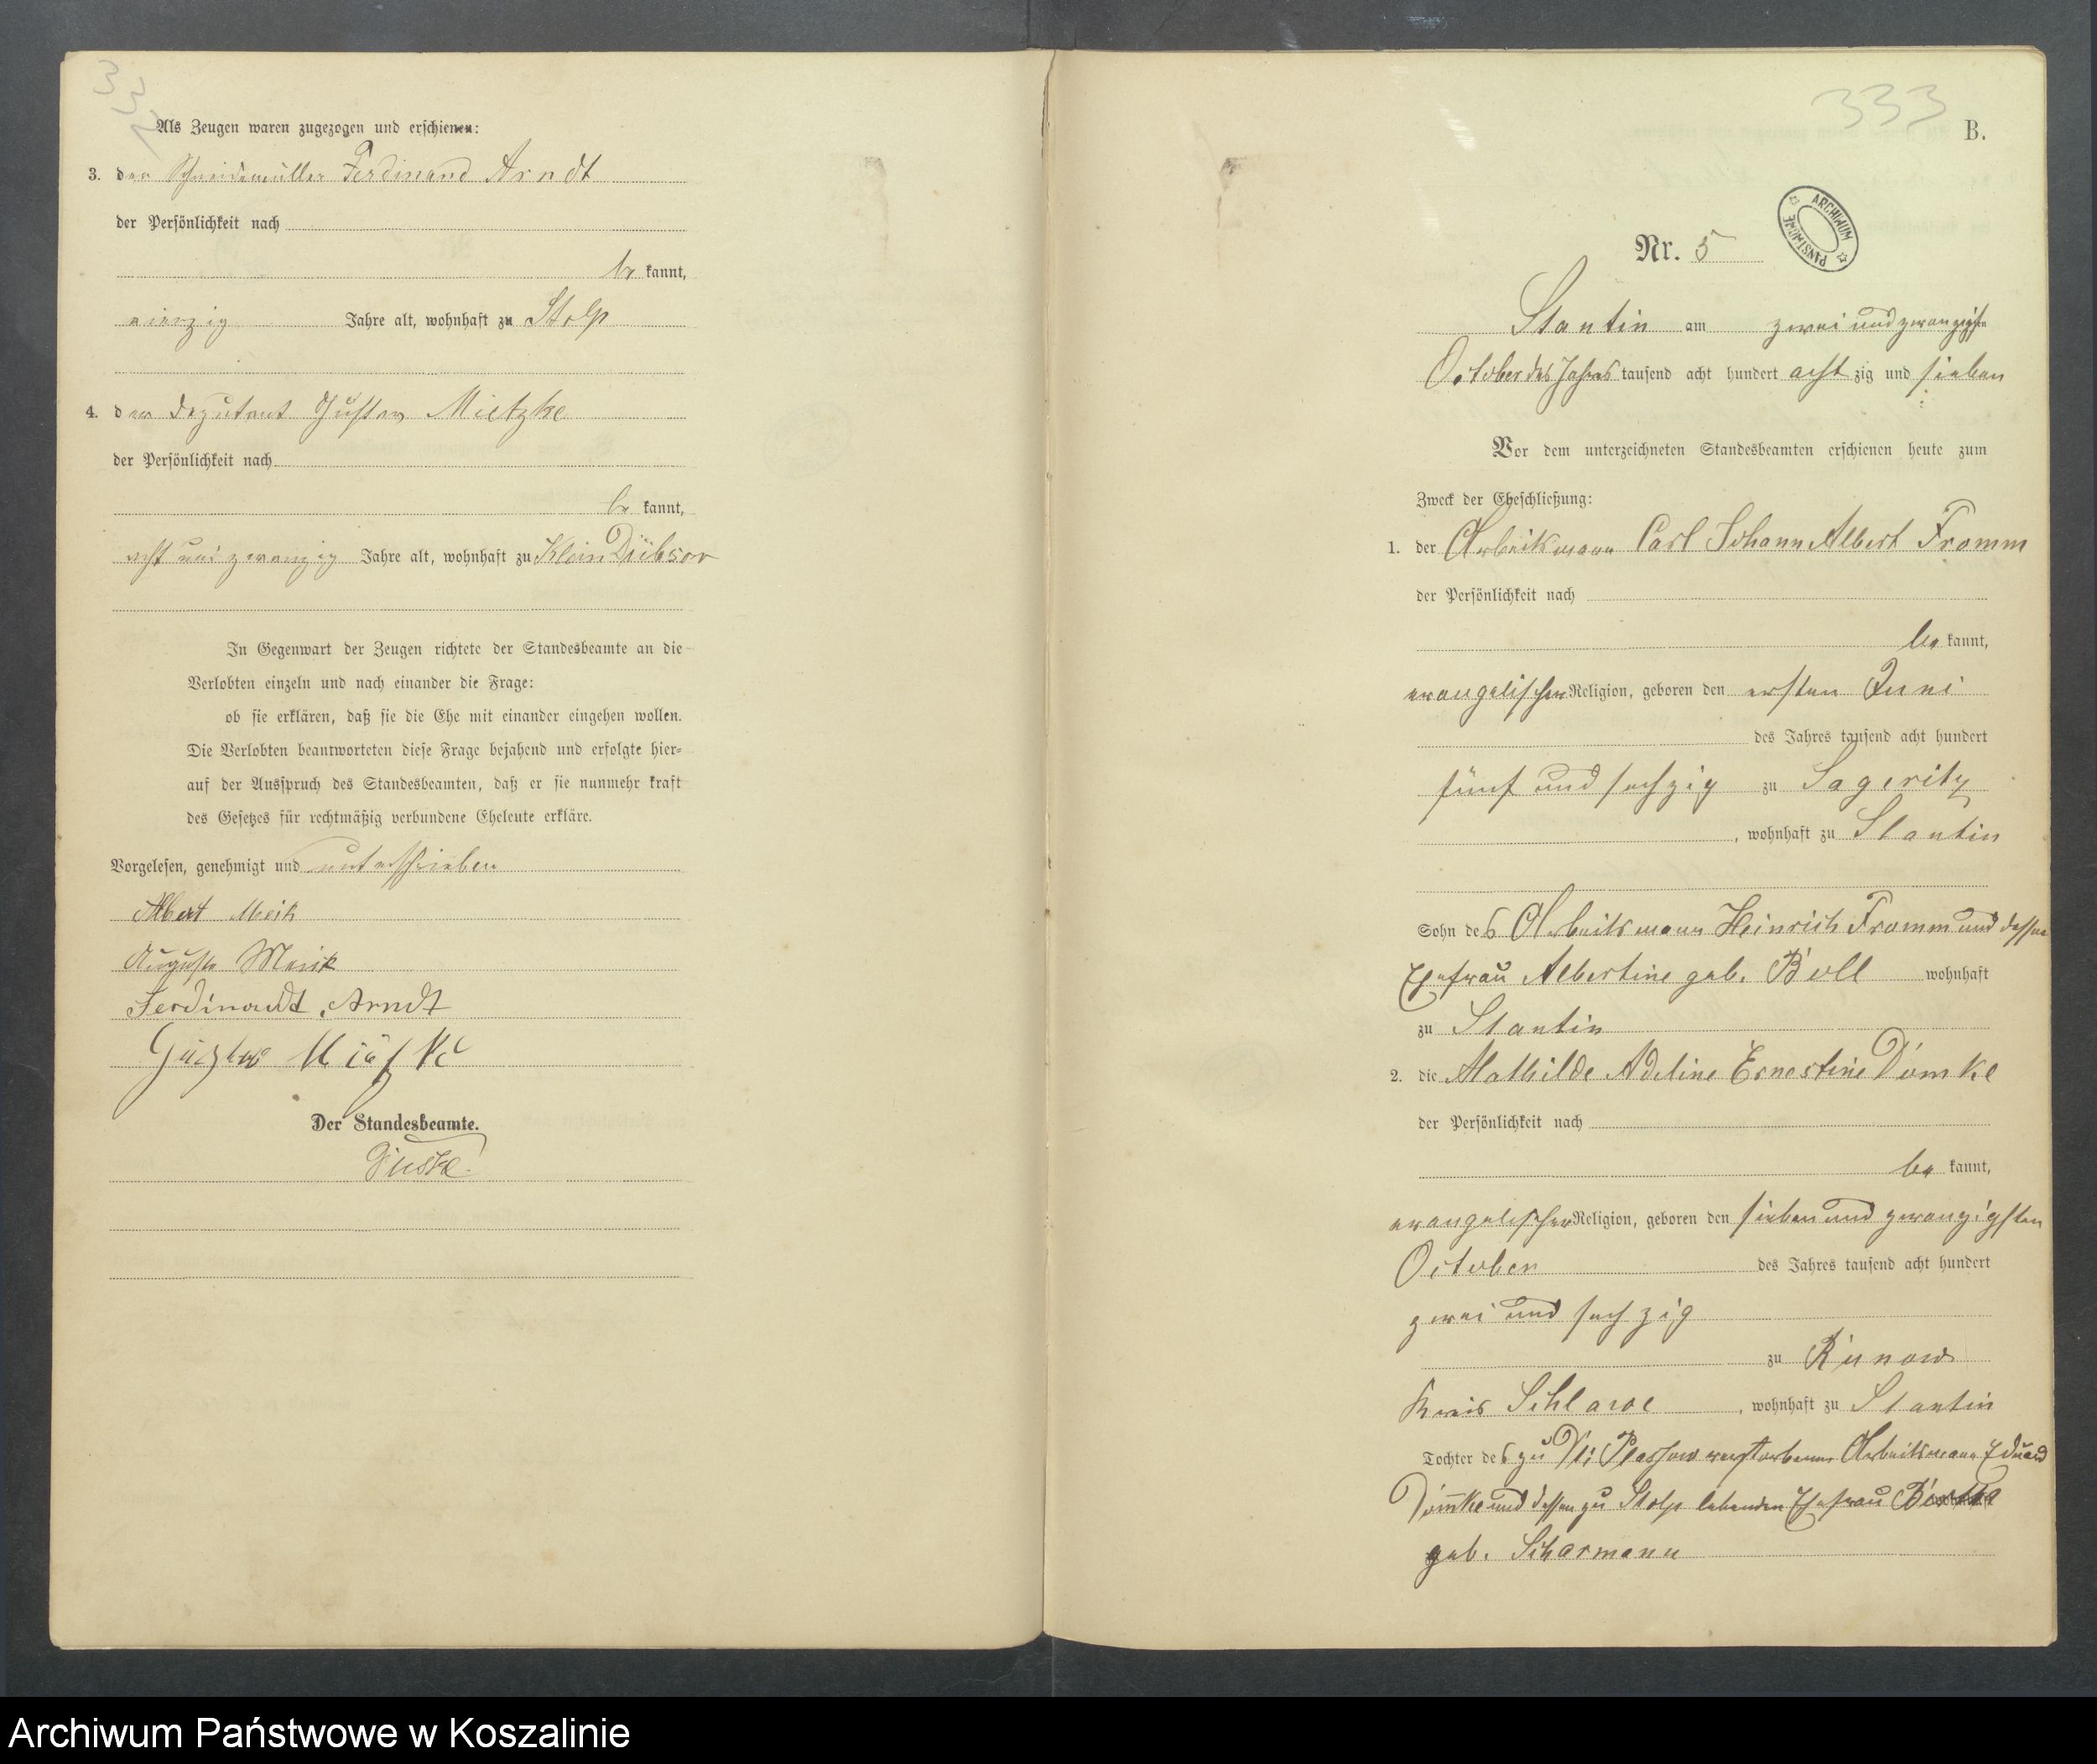 332
Als Zeugen waren zugezogen und erschienen:
3. der Schneidemüller Ferdinand Arndt
der Persönlichkeit nach
be kannt,
vierzig Jahre alt, wohnhaft zu Stolp
4. der Deputant Gustav Mietzke
der Persönlichkeit nach
be kannt,
acht und zwanzig Jahre alt, wohnhaft zu Klein Dübsow
In Gegenwart der Zeugen richtete der Standesbeamte an die
Verlobten einzeln und nach einander die Frage:
ob sie erklären, daß sie die Ehe mit einander eingehen wollen.
Die Verlobten beantworteten diese Frage bejahend und erfolgte hier-
auf der Ausspruch des Standesbeamten, daß er sie nunmehr kraft
des Gesetzes für rechtmäßig verbundene Eheleute erkläre.
Vorgelesen, genehmigt und unterschrieben
Albert
Auguste
Ferdinandt Arndt
Der Standesbeamte.
333
B.
ARCHIWUM PAŃSTWOWE
Nr. 5
Stantin am zwei und zwanzigsten
October des Jahres tausend acht hundert acht zig und sieben
Vor dem unterzeichneten Standesbeamten erschienen heute zum
Zweck der Eheschließung:
1. der Arbeitsmann Carl Johann Albert Fromm
der Persönlichkeit nach
be kannt,
evangelischer Religion, geboren den ersten Juni
des Jahres tausend acht hundert
fünf und sechzig zu Sageritz
, wohnhaft zu Stantin
Sohn des Arbeitsmann Heinrich Fromm und dessen
Ehefrau Albertine geb. Boll wohnhaft
zu Stantin
2. die Mathilde Adeline Ernestine Dümke
der Persönlichkeit nach
be kannt,
evangelischer Religion, geboren den sieben und zwanzigsten
October des Jahres tausend acht hundert
zwei und sechzig
zu Runow
Kreis Schlawe, wohnhaft zu Stantin
Tochter des zu Plassow verstorbenen Arbeitsmann Eduard
Dümke und dessen zu Stolp lebenden Ehefrau
geb. Scharmann
Archiwum Państwowe w Koszalinie